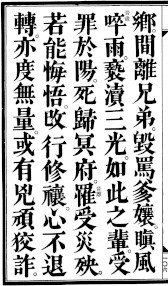 鄉。間離兄弟。毀罵爹孃。瞋風
啐雨。褻瀆三光。如此之輩。受
罪於陽。死歸冥府。罹受災殃。
若能悔悟。改行修禳。心不退
轉。亦度無量。或有兇頑狡詐。